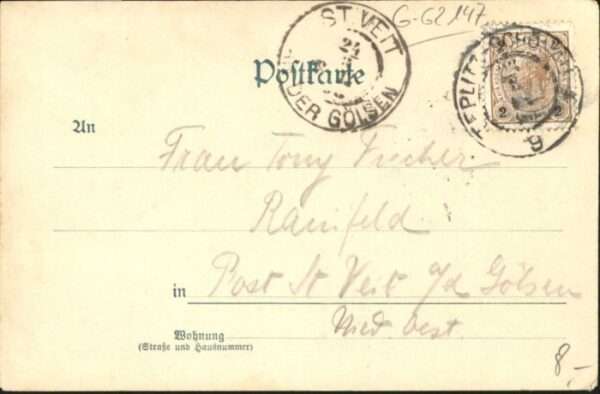 G-G2147
ST. VEIT
24
A. DER GÖLSEN
TEPLITZ SCHÖNAU
9
2 2
Postkarte
An
Frau Tony Fischer
Rainfeld
in Post St Veit a/d Gölsen
Nied. oest.
Wohnung
(Straße und Hausnummer)
8.-